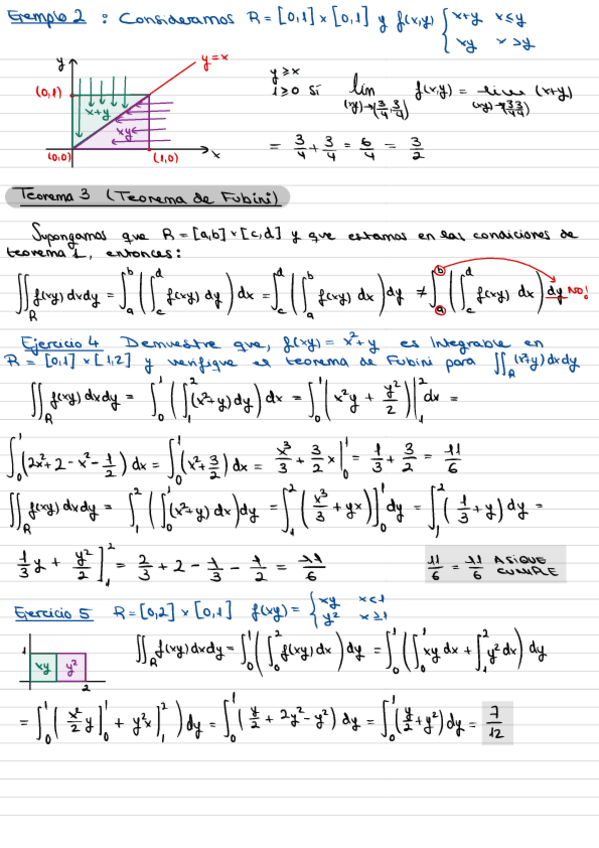 Ejemplo 2 : Consideramos R = [0,1] × [0,1] y f(x,y) { x+y x≤y
xy x>y
y
y=x
(0,1)
x+y
xy
(0,0)
(1,0)
x
y≥x
1≥0 si lím f(x,y) = lim (x+y)
(x,y)→(3/4, 3/4) (x,y)→(3/4, 3/4)
= 3/4 + 3/4 = 6/4 = 3/2
Teorema 3 (Teorema de Fubini)
Supongamos que R = [a,b] × [c,d] y que estamos en las condiciones de
teorema 1, entonces:
∬_R f(xy) dxdy = ∫_a^b ( ∫_c^d f(xy) dy ) dx = ∫_c^d ( ∫_a^b f(xy) dx ) dy ≠ ∫_a^b ( ∫_c^d f(xy) dx ) dy NO!
Ejercicio 4 Demuestre que, f(xy) = x²+y es Integrable en
R = [0,1] × [1,2] y verifique el teorema de Fubini para ∬_R (x²+y) dxdy
∬_R f(xy) dxdy = ∫_0^1 ( ∫_1^2 (x²+y) dy ) dx = ∫_0^1 ( x²y + y²/2 ) |_1^2 dx =
∫_0^1 ( 2x²+2 - x² - 1/2 ) dx = ∫_0^1 ( x² + 3/2 ) dx = x³/3 + 3/2 x |_0^1 = 1/3 + 3/2 = 11/6
∬_R f(xy) dxdy = ∫_1^2 ( ∫_0^1 (x²+y) dx ) dy = ∫_1^2 ( x³/3 + yx ) ]_0^1 dy = ∫_1^2 ( 1/3 + y ) dy =
1/3 y + y²/2 ]_1^2 = 2/3 + 2 - 1/3 - 1/2 = 11/6
11/6 = 11/6 ASIQUE CUMPLE
Ejercicio 5 R = [0,2] × [0,1] f(xy) = { xy x<1
y² x≥1
1
xy y²
2
∬_R f(xy) dxdy = ∫_0^1 ( ∫_0^2 f(xy) dx ) dy = ∫_0^1 ( ∫_0^1 xy dx + ∫_1^2 y² dx ) dy
= ∫_0^1 ( x²/2 y ]_0^1 + y²x ]_1^2 ) dy = ∫_0^1 ( y/2 + 2y² - y² ) dy = ∫_0^1 ( y/2 + y² ) dy = 7/12